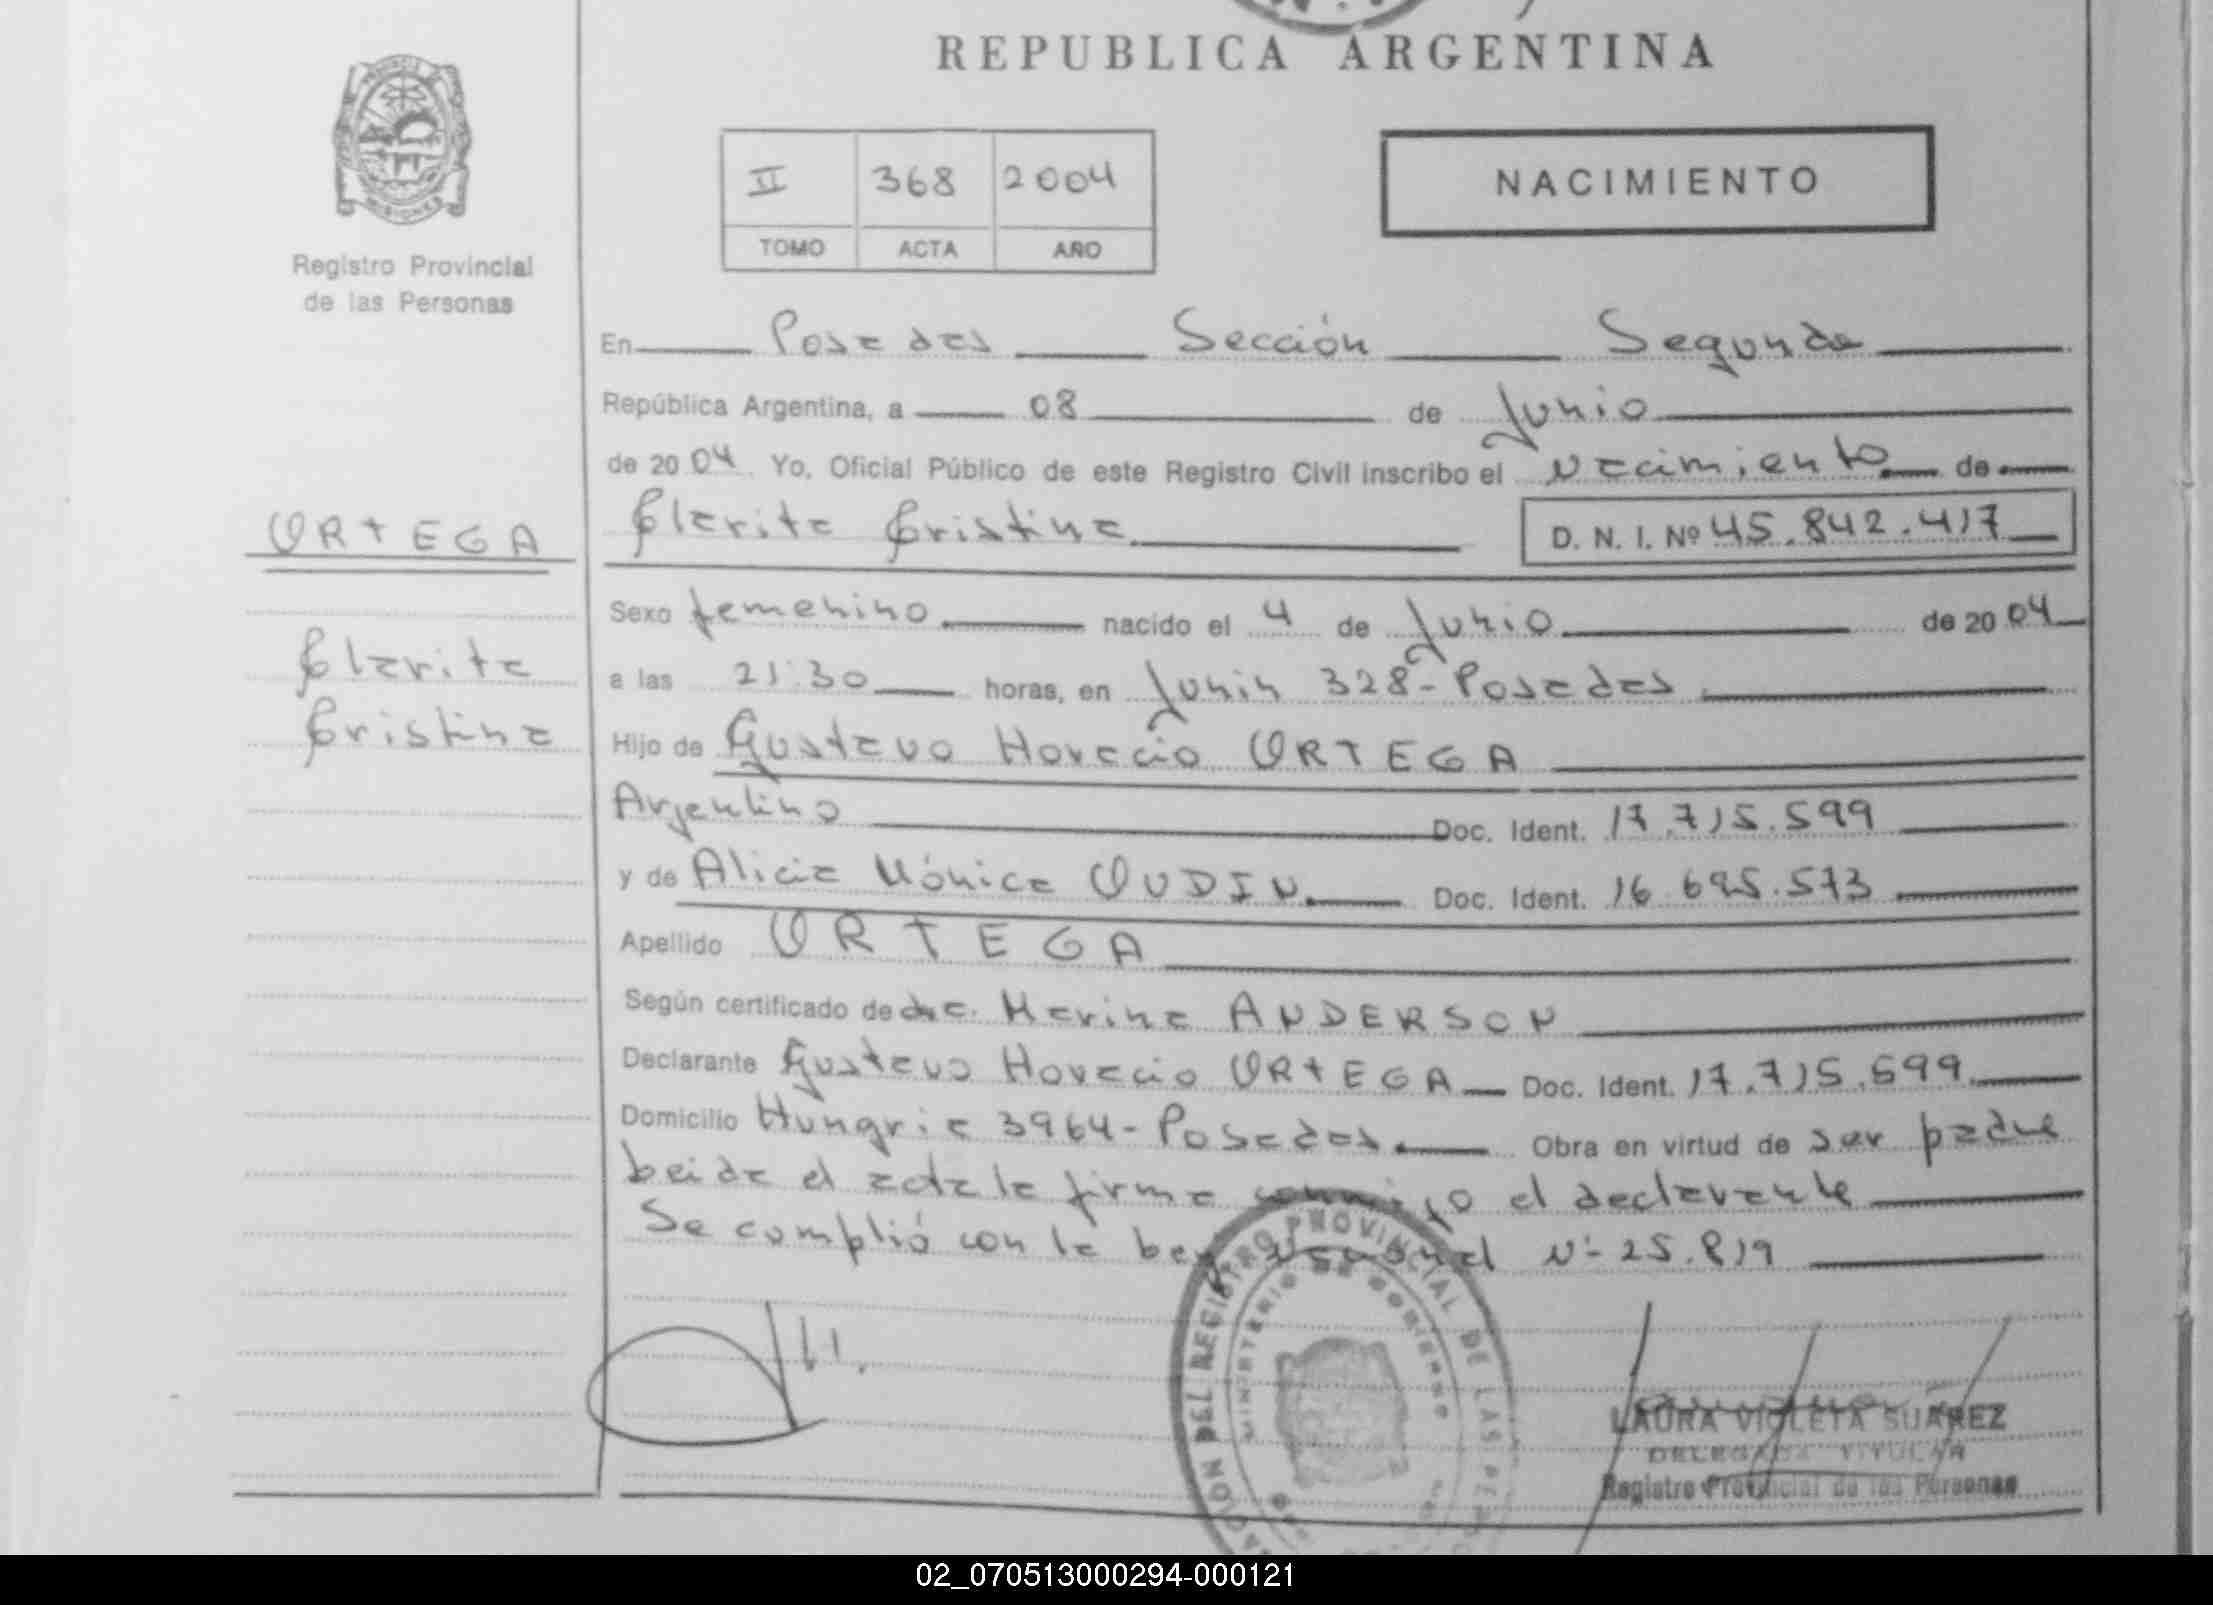 REPUBLICA ARGENTINA
MISIONES
Registro Provincial
de las Personas
II 368 2004
TOMO ACTA AÑO
NACIMIENTO
En Posadas Sección Segunda
República Argentina, a 08 de Junio
de 2004. Yo, Oficial Público de este Registro Civil inscribo el nacimiento de
ORTEGA
Clarita Cristina
Clarita Cristina D. N. I. Nº 45.842.417
Sexo femenino nacido el 4 de Junio de 2004
a las 21:30 horas, en Junin 328-Posadas
Hijo de Gustavo Horacio ORTEGA
Argentino Doc. Ident. 17.715.599
y de Alicia Mónica OUDIN Doc. Ident. 16.695.573
Apellido ORTEGA
Según certificado de dra. Marina ANDERSON
Declarante Gustavo Horacio ORTEGA Doc. Ident. 17.715.599
Domicilio Hungria 3964-Posadas Obra en virtud de ser padre
Leida el acta la firma conmigo el declarante
Se cumplió con la Ley Nacional Nº 25.819
REGISTRO PROVINCIAL DE LAS
MINISTERIO DE GOBIERNO
LAURA VIOLETA SUAREZ
DELEGADA TITULAR
Registro Provincial de las Personas
02_070513000294-000121